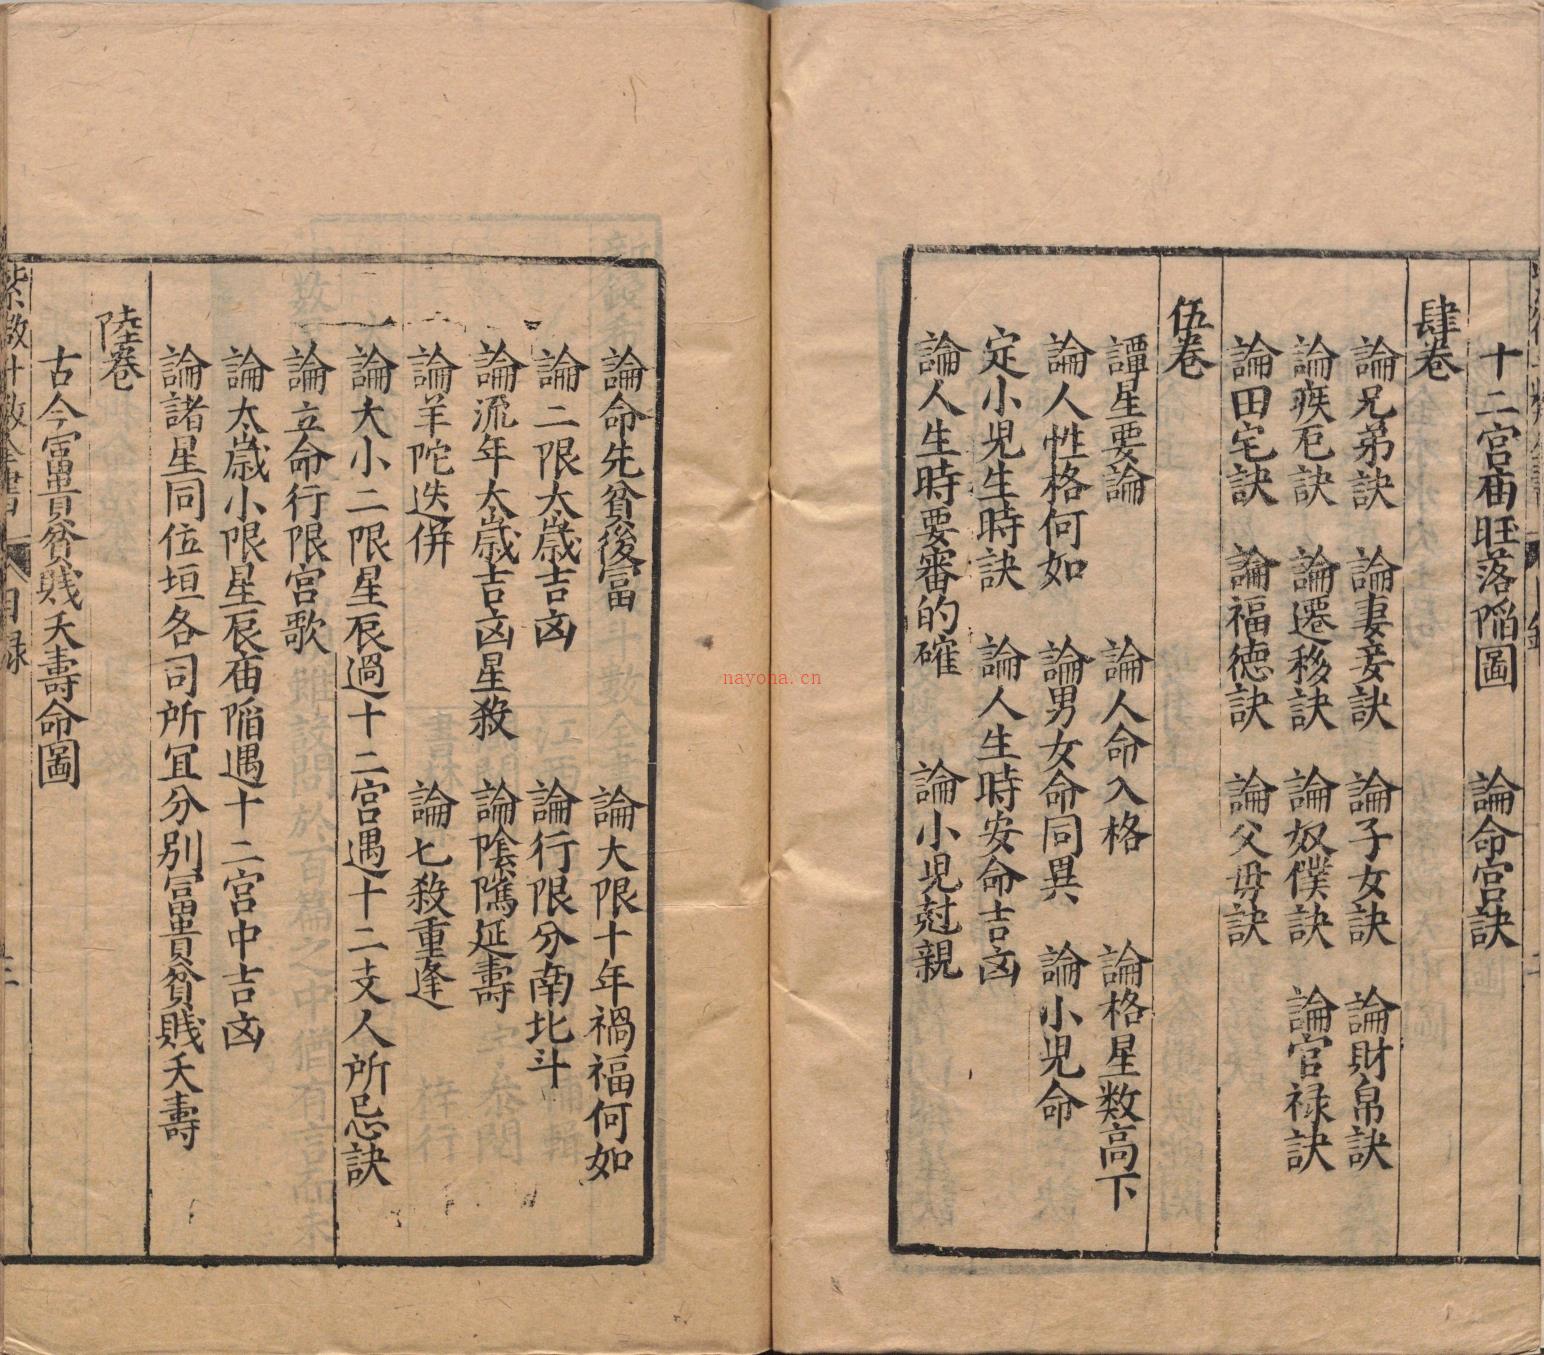 十二宮庙旺落陷圖　論命宮訣
肆卷
論兄弟訣　論妻妾訣　論子女訣　論財帛訣
論疾厄訣　論遷移訣　論奴僕訣　論官禄訣
論田宅訣　論福德訣　論父母訣
伍卷
譚星要論　論人命入格　論格星数高下
論人性格何如　論男女命同異　論小児命
定小児生時訣　論人生時安命吉凶
論人生時要審的確　論小児尅親
nayona.cn
論命先貧後富　論大限十年禍福何如
論二限太歳吉凶　論行限分南北斗
論流年太歳吉凶星殺　論陰隲延壽
論羊陀迭併　論七殺重逢
論大小二限星辰過十二宮遇十二支人所忌訣
論立命行限宮歌
論太歳小限星辰庙陷遇十二宮中吉凶
論諸星同位垣各司所宜分别富貴貧賎夭壽
陸卷
古今富貴貧賎夭壽命圖
紫微斗数全書　目録